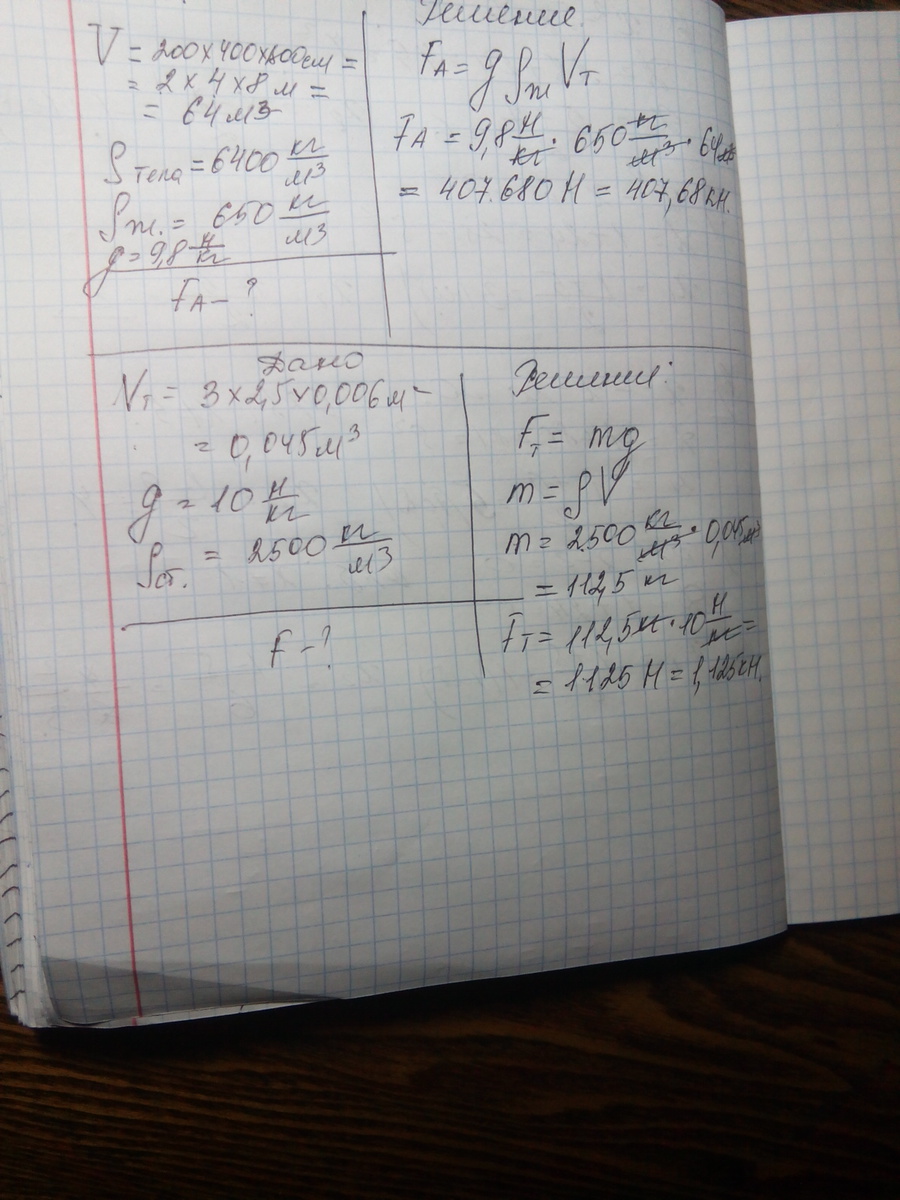 V = 200 x 400 x 800 см =
= 2 x 4 x 8 м =
= 64 м3
ρ тела = 6400 кг/м3
ρ ж. = 650 кг/м3
g = 9,8 Н/кг
FA - ?
Решение
FA = g ρж Vт
FA = 9,8 Н/кг · 650 кг/м3 · 64 м3
= 407.680 Н = 407,68 кН.
Дано
Vт = 3 x 2,5 x 0,006 м =
= 0,045 м3
g = 10 Н/кг
ρст. = 2500 кг/м3
F - ?
Решение:
Fт = mg
m = ρV
m = 2500 кг/м3 · 0,045 м3
= 112,5 кг
Fт = 112,5 кг · 10 Н/кг =
= 1125 Н = 1,125 кН.